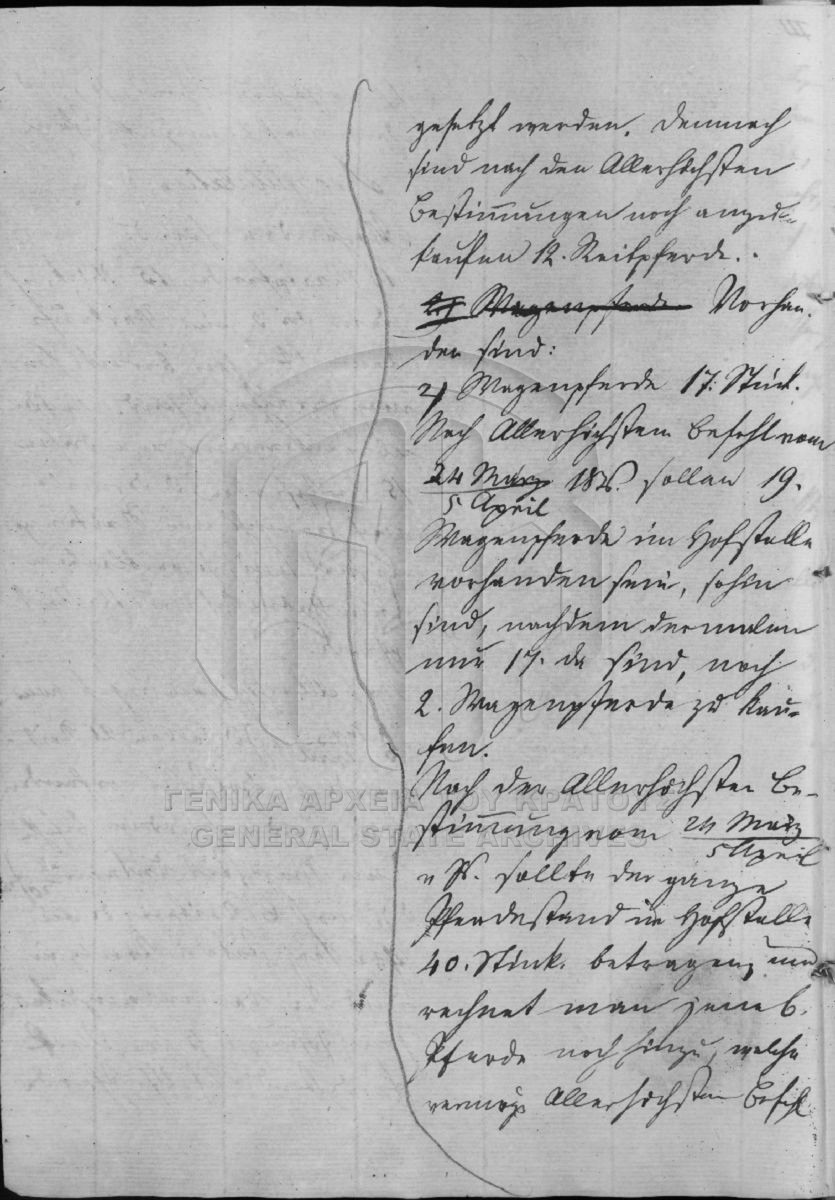 gesetzt werden. Demnach
sind nach den Allerhöchsten
Bestimmungen noch anzu-
kaufen 12. Reitpferde.
Wagenpferde Vorhan-
den sind:
2) Wagenpferde 17. Stück.
Nach Allerhöchstem Befehl vom
24 März
5 April
sollen 19.
Wagenpferde im Hofstalle
vorhanden sein, sohin
sind, nachdem dermalen
nur 17. da sind, noch
2. Wagenpferde zu kau-
fen.
Nach der Allerhöchsten Be-
stimmung vom 24 März
5 April
sollte der ganze
Pferdestand im Hofstalle
40. Stück. betragen, und
rechnet man jene 6.
Pferde noch hinzu, welche
vermög Allerhöchstem Befehl
ΓΕΝΙΚΑ ΑΡΧΕΙΑ ΤΟΥ ΚΡΑΤΟΥΣ
GENERAL STATE ARCHIVES